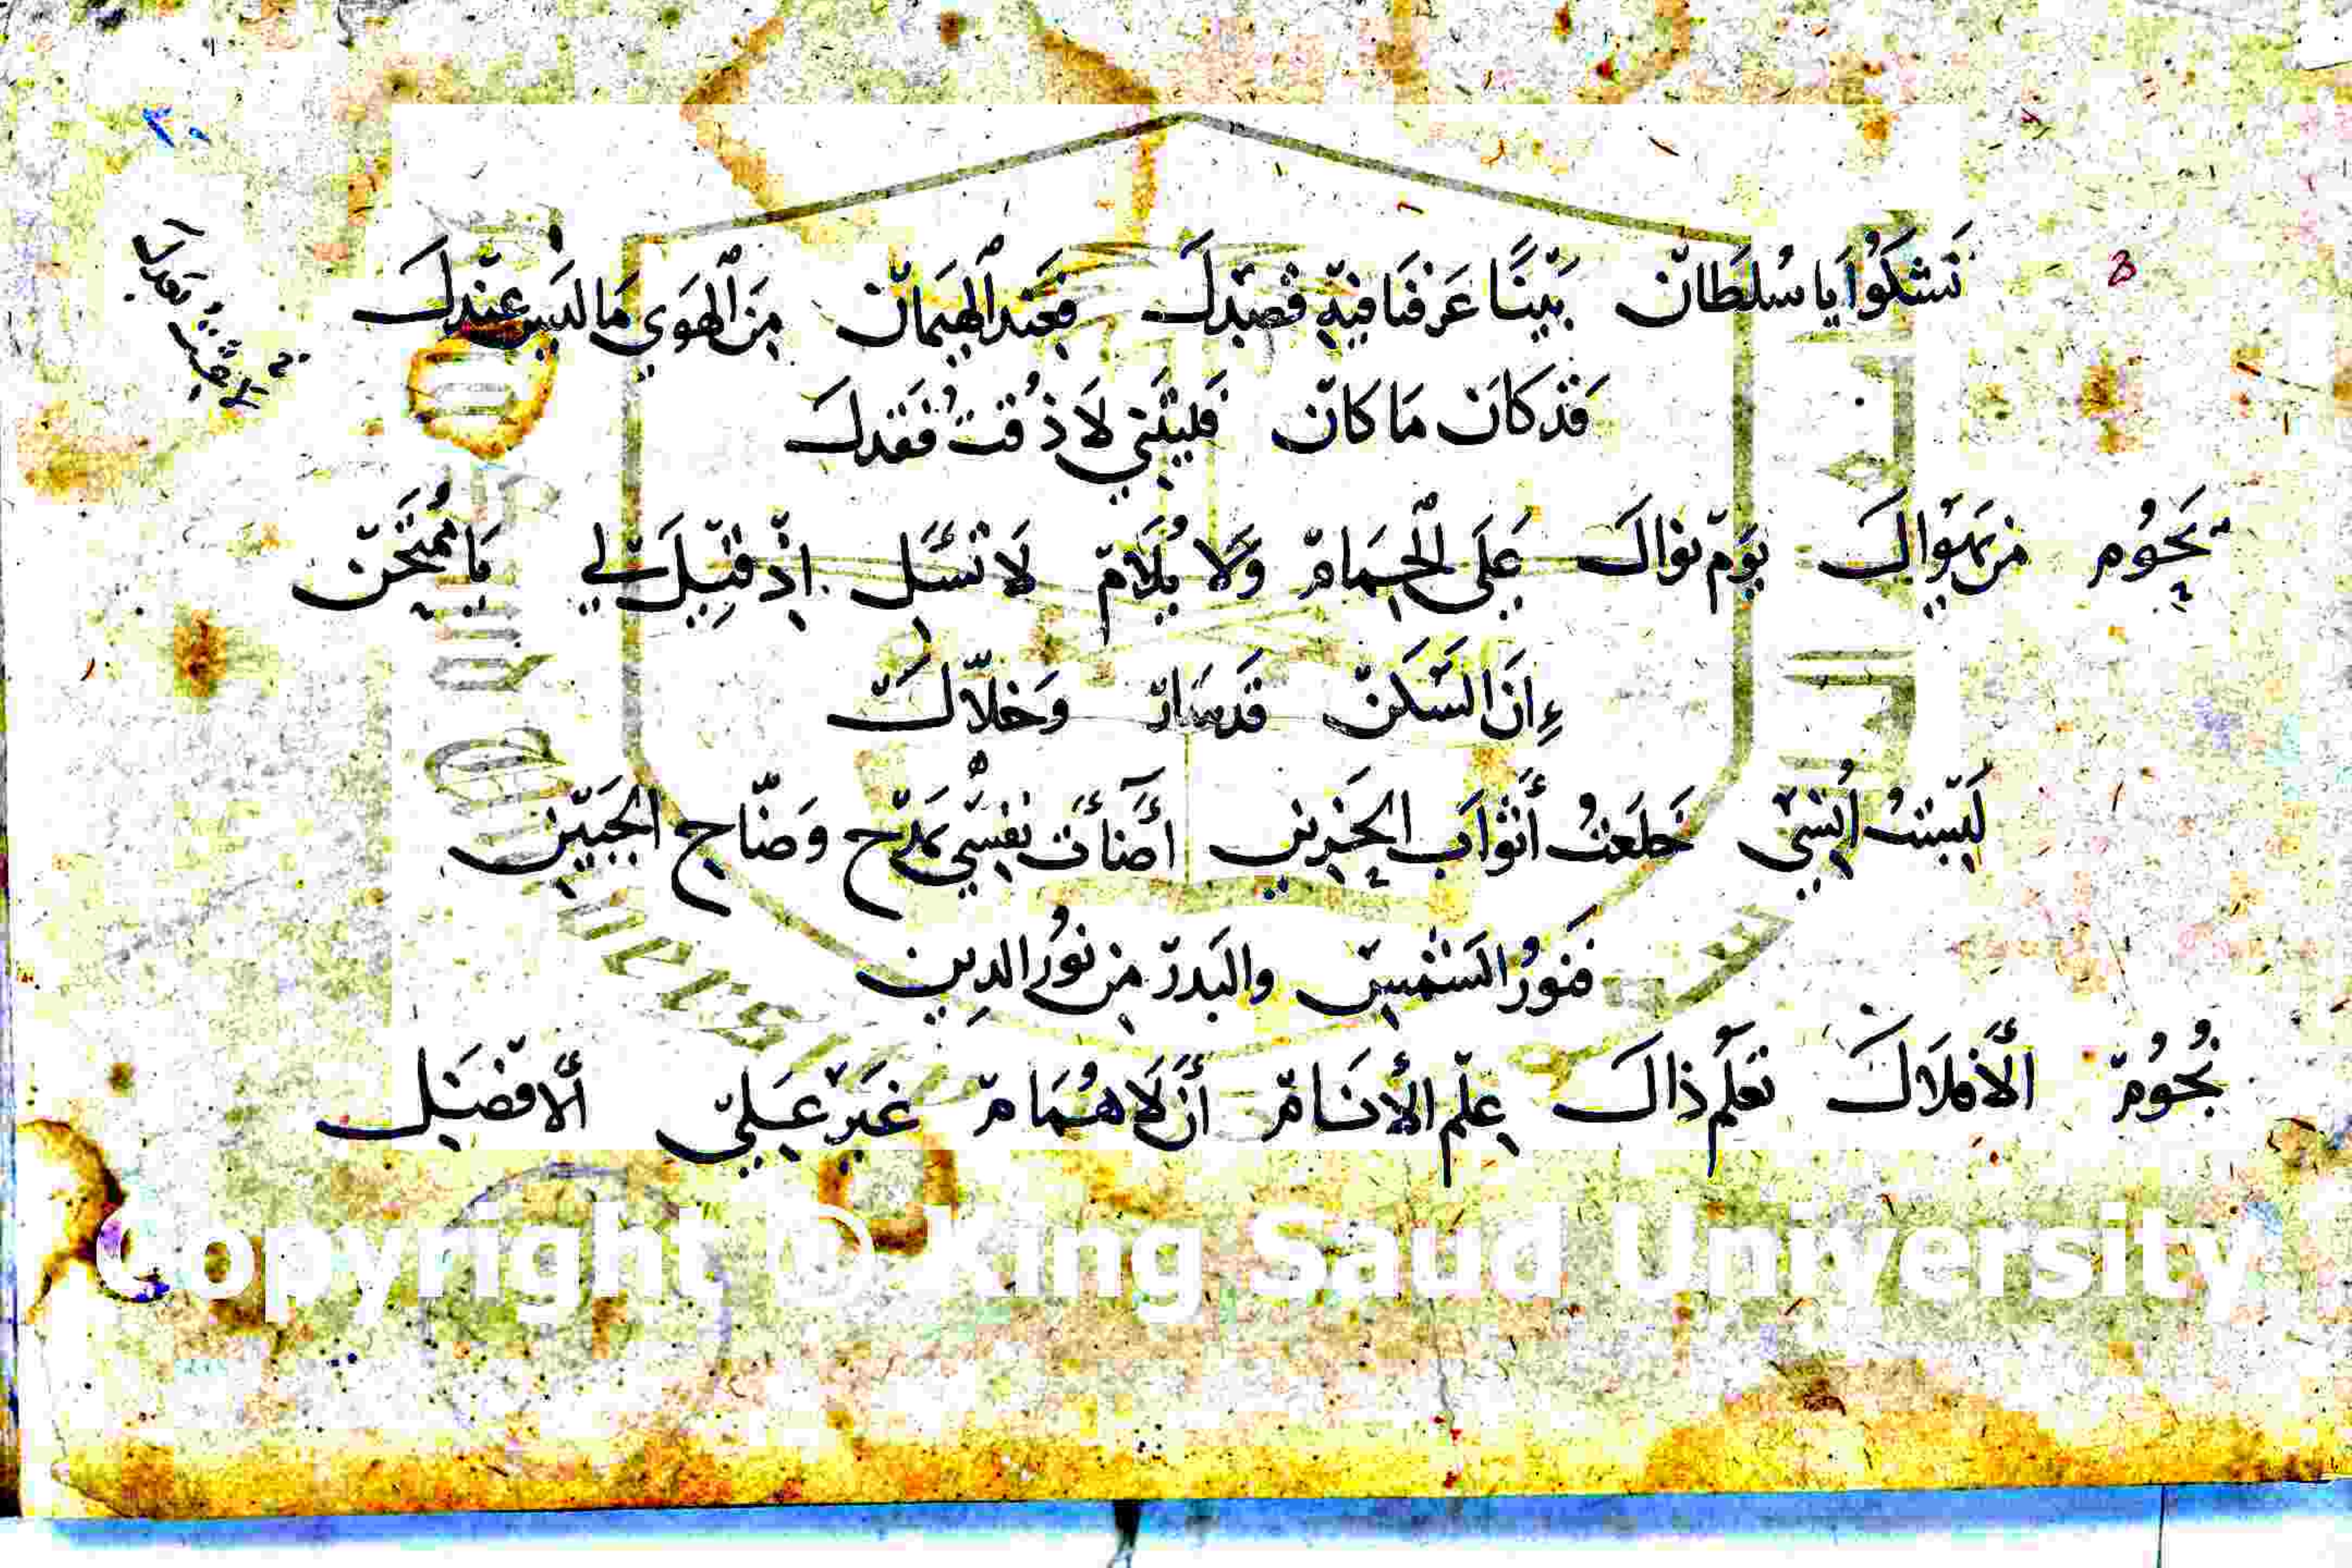 نَشْكُوْا يَا سُلْطَانْ بَيْنًا عَرَفْنَا فِيْهِ قَصْدَكَ فَعِنْدَ الْهِيمَانْ مِنَ الْهَوَي مَا لَيْسَ عِنْدَكَ
قَدْ كَانَ مَا كَانْ فَلَيْتَنِي لَا ذُقْتُ فَقْدَكَ
يَحُوْم مَنْ يَهْوَاكَ يَوْمَ نَوَاكَ عَلَى الْحِمَامْ وَلَا يُلَامْ لَا تَسْئَل اِذْ قِيْلَ لِي يَا مُمْتَحَنْ
ءِانَ السَّكَنْ قَدْ سَارْ وَخَلَّاكَ
لَبِسْتُ اُنْسِيْ خَلَعْتُ أَثْوَابَ الْحَزِينِ أَضَأَتْ نَفْسِي بِمَدْحِ وَضَّاحِ الْجَبِيْنِ
فَنُوْرُ الشَّمْسِ وَالْبَدْرْ مِنْ نُوْرِ الدِيْنِ
نُجُوُمْ الْأَفْلَاكْ تَعْلَمْ ذَاكَ عِلْمْ الْأَنَامْ أَنْ لَا هُمَامْ غَيْرْ عَلِيّ الْأَفْضَل
Copyright © King Saud University